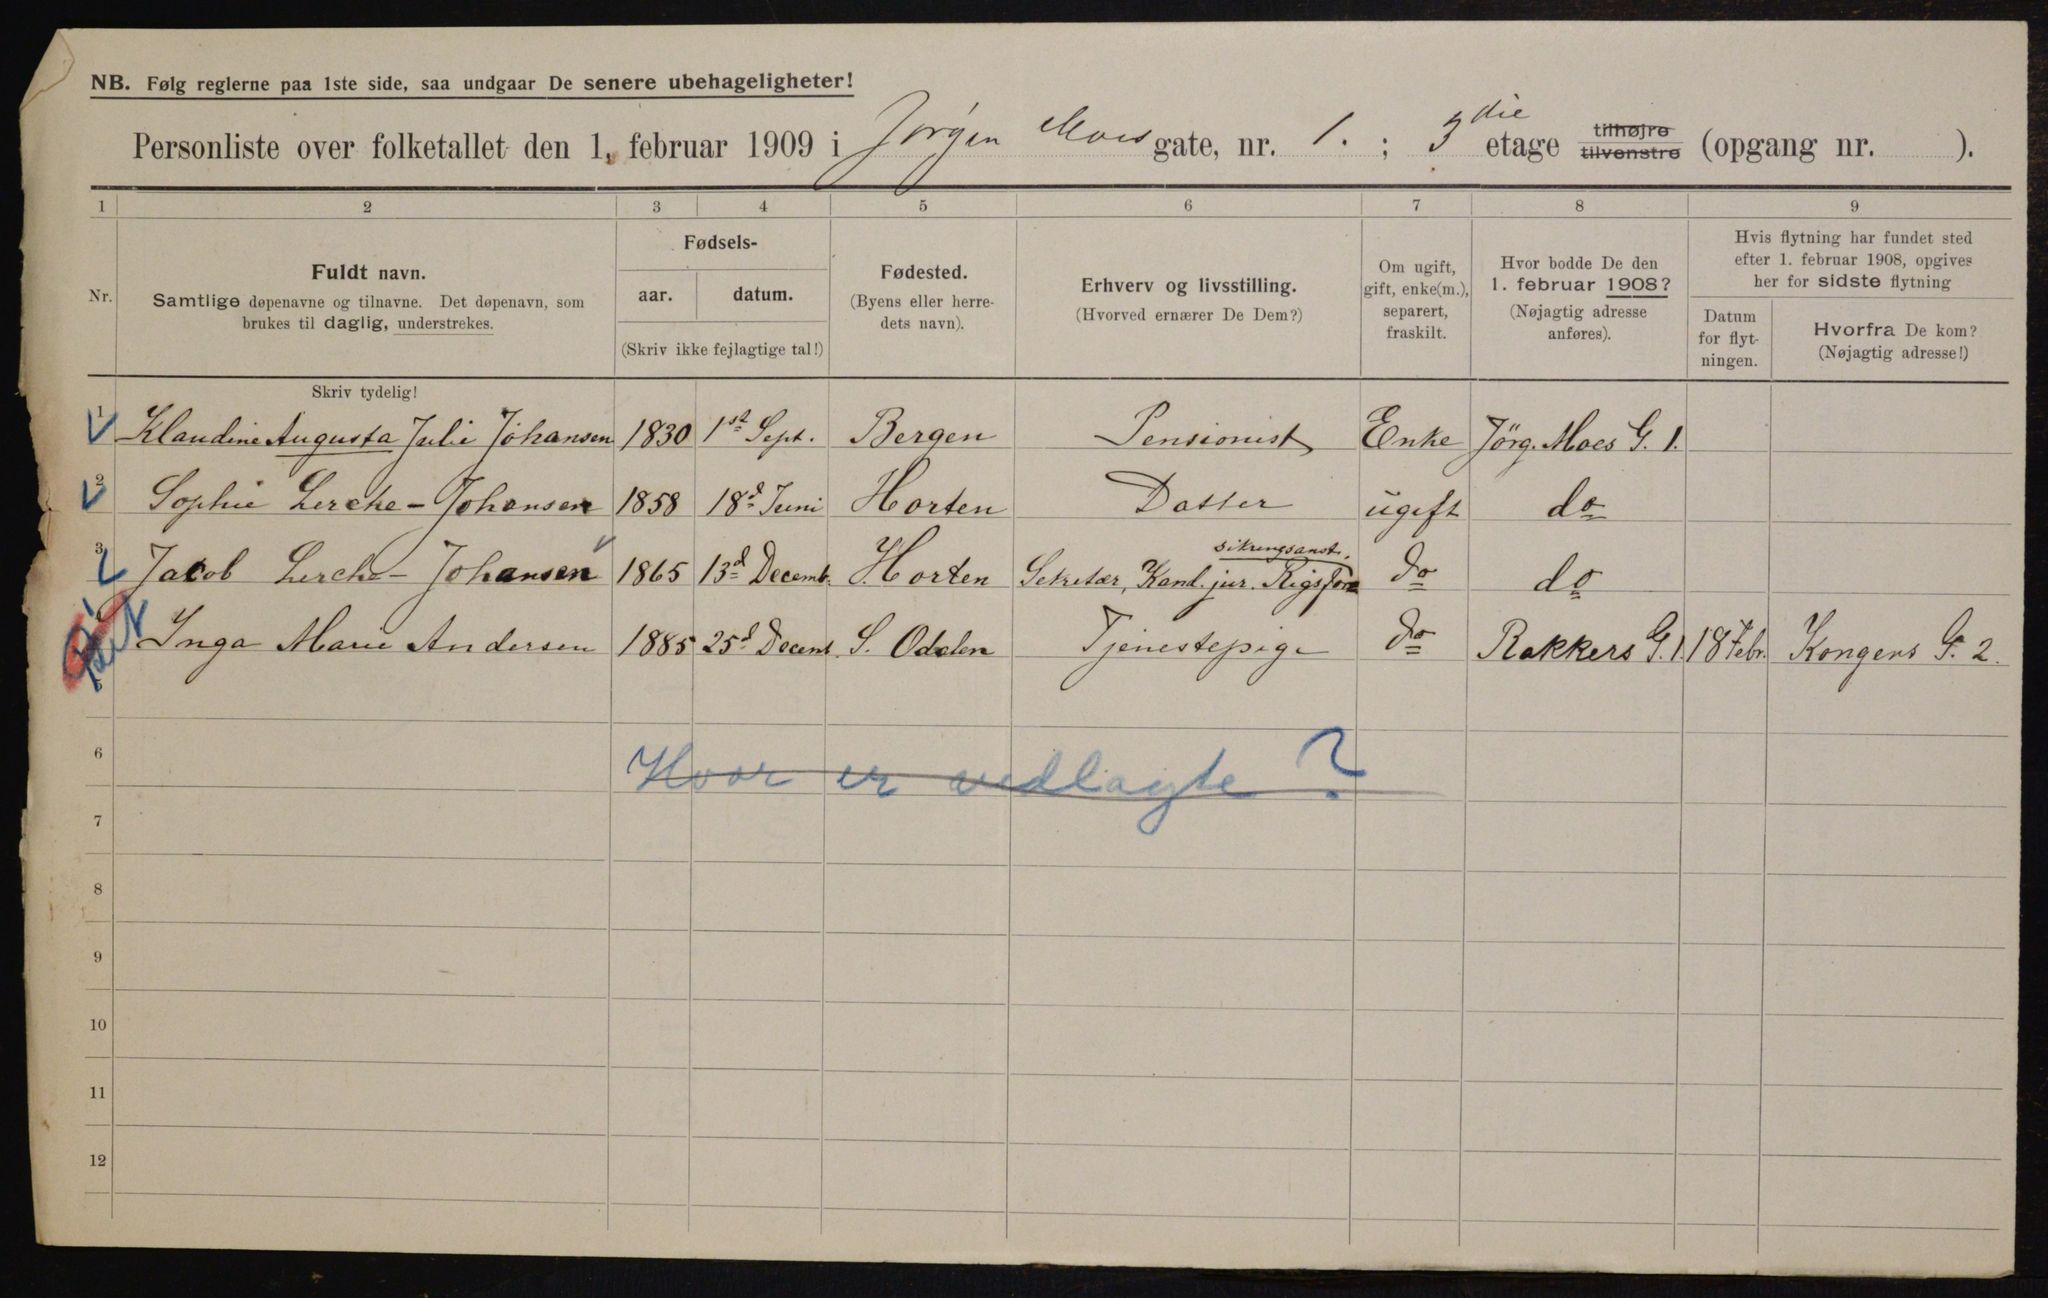 NB. Følg reglerne paa 1ste side, saa undgaar De senere ubehageligheter!
Personliste over folketallet den 1. februar 1909 i Jørgen Moes gate, nr. 1. ; 3die etage tilhøjre tilvenstre (opgang nr. ).
1 2 3 4 5 6 7 8 9
Nr.
Fuldt navn.
Samtlige døpenavne og tilnavne. Det døpenavn, som
brukes til daglig, understrekes.
Skriv tydelig!
Fødsels-
aar. datum.
(Skriv ikke fejlagtige tal!)
Fødested.
(Byens eller herre-
dets navn).
Erhverv og livsstilling.
(Hvorved ernærer De Dem?)
Om ugift,
gift, enke(m.),
separert,
fraskilt.
Hvor bodde De den
1. februar 1908?
(Nøjagtig adresse
anføres).
Hvis flytning har fundet sted
efter 1. februar 1908, opgives
her for sidste flytning
Datum
for flyt-
ningen.
Hvorfra De kom?
(Nøjagtig adresse!)
1 Klaudine Augusta Julie Johansen 1830 1st Sept. Bergen Pensionist Enke Jörg. Moes G. 1.
2 Sophie Lerche-Johansen 1858 18d Juni Horten Datter ugift do
3 Jacob Lerche-Johansen 1865 13d Decemb. Horten Sekretær, Kand. jur. Rigsfor
sikringsanst. do do
Inga Marie Andersen 1885 25d Decemb. S. Odalen Tjenestepige do Rakkers G. 1. 18 Febr. Kongens G. 2.
5
6
Hvor er vedlagte?
7
8
9
10
11
12